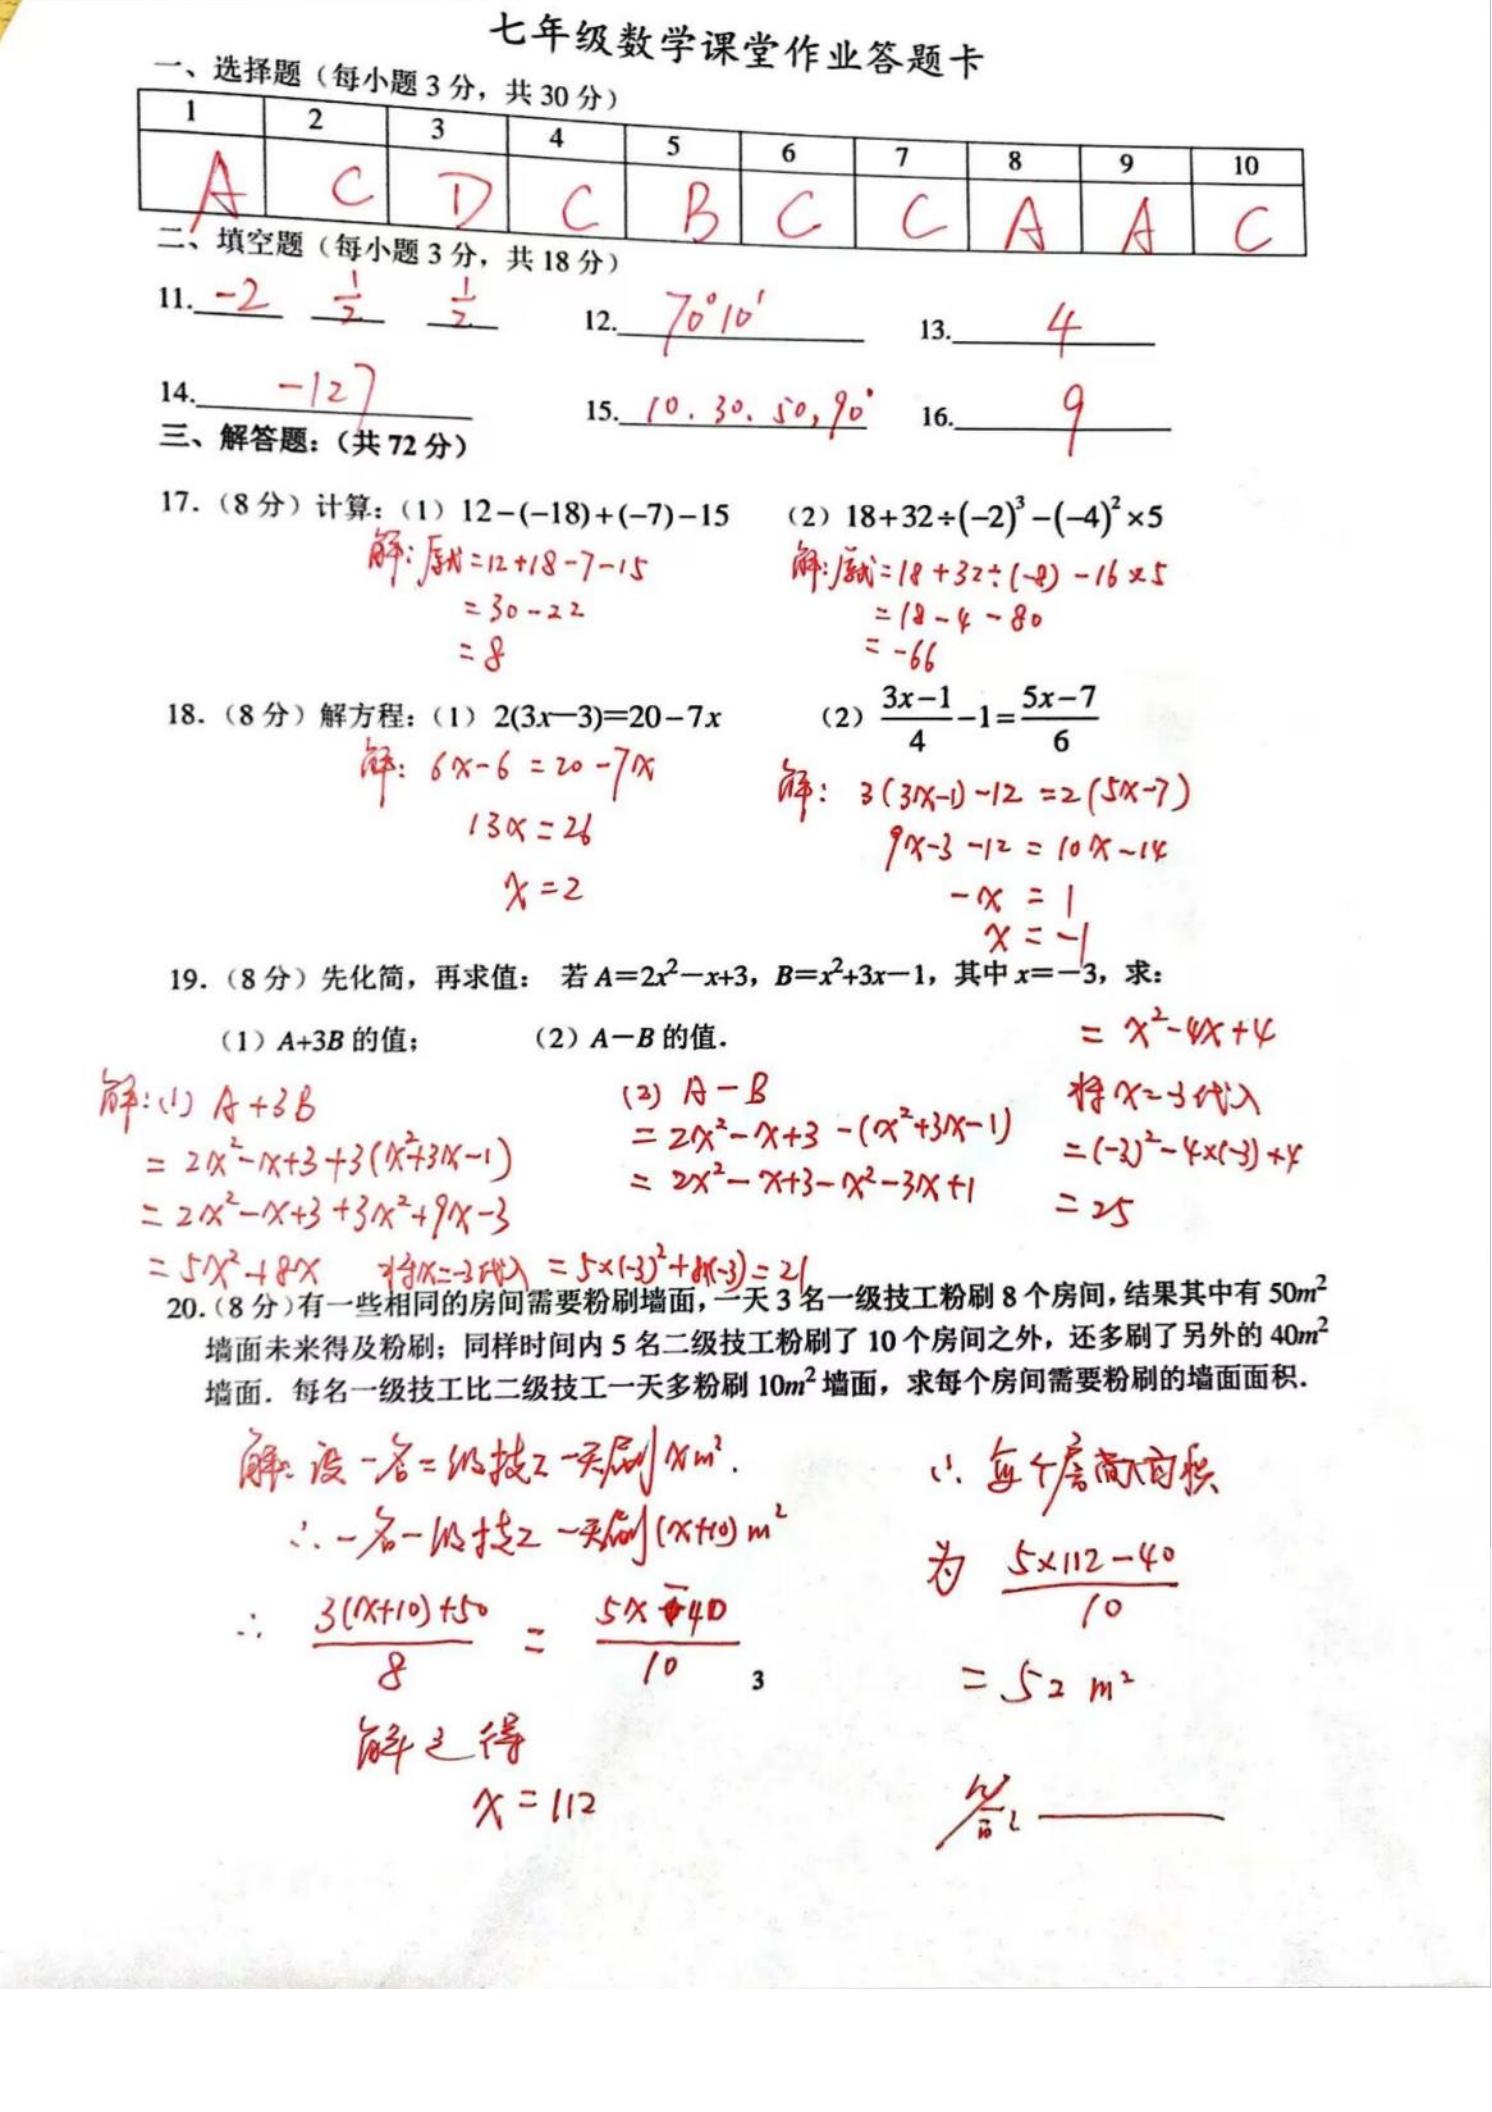 七年级数学课堂作业答题卡
一、选择题（每小题3分，共30分）
1 2 3 4 5 6 7 8 9 10
A C D C B C C A A C
二、填空题（每小题3分，共18分）
11. -2 1/2 1/2 12. 70°10′ 13. 4
14. -127 15. 10、30、50，90° 16. 9
三、解答题：（共72分）
17.（8分）计算：（1）12-(-18)+(-7)-15 （2）18+32÷(-2)³-(-4)²×5
解：原式=12+18-7-15
=30-22
=8
解：原式=18+32÷(-8)-16×5
=18-4-80
=-66
18.（8分）解方程：（1）2(3x—3)=20-7x （2）(3x-1)/4-1=(5x-7)/6
解：6x-6=20-7x
13x=26
x=2
解：3(3x-1)-12=2(5x-7)
9x-3-12=10x-14
-x=1
x=-1
19.（8分）先化简，再求值： 若A=2x²-x+3，B=x²+3x-1，其中x=-3，求：
（1）A+3B的值； （2）A-B的值.
解：(1) A+3B
=2x²-x+3+3(x²+3x-1)
=2x²-x+3+3x²+9x-3
=5x²+8x 将x=-3代入=5×(-3)²+8×(-3)=21
(2) A-B
=2x²-x+3-(x²+3x-1)
=2x²-x+3-x²-3x+1
=x²-4x+4
将x=-3代入
=(-3)²-4×(-3)+4
=25
20.（8分）有一些相同的房间需要粉刷墙面，一天3名一级技工粉刷8个房间，结果其中有50m²
墙面未来得及粉刷；同样时间内5名二级技工粉刷了10个房间之外，还多刷了另外的40m²
墙面．每名一级技工比二级技工一天多粉刷10m²墙面，求每个房间需要粉刷的墙面面积．
解：设一名二级技工一天刷xm².
∴一名一级技工一天刷(x+10)m²
∴ (3(x+10)+50)/8=(5x-40)/10
解之得
x=112
∴每个房间面积
为 (5×112-40)/10
=52m²
答：
3